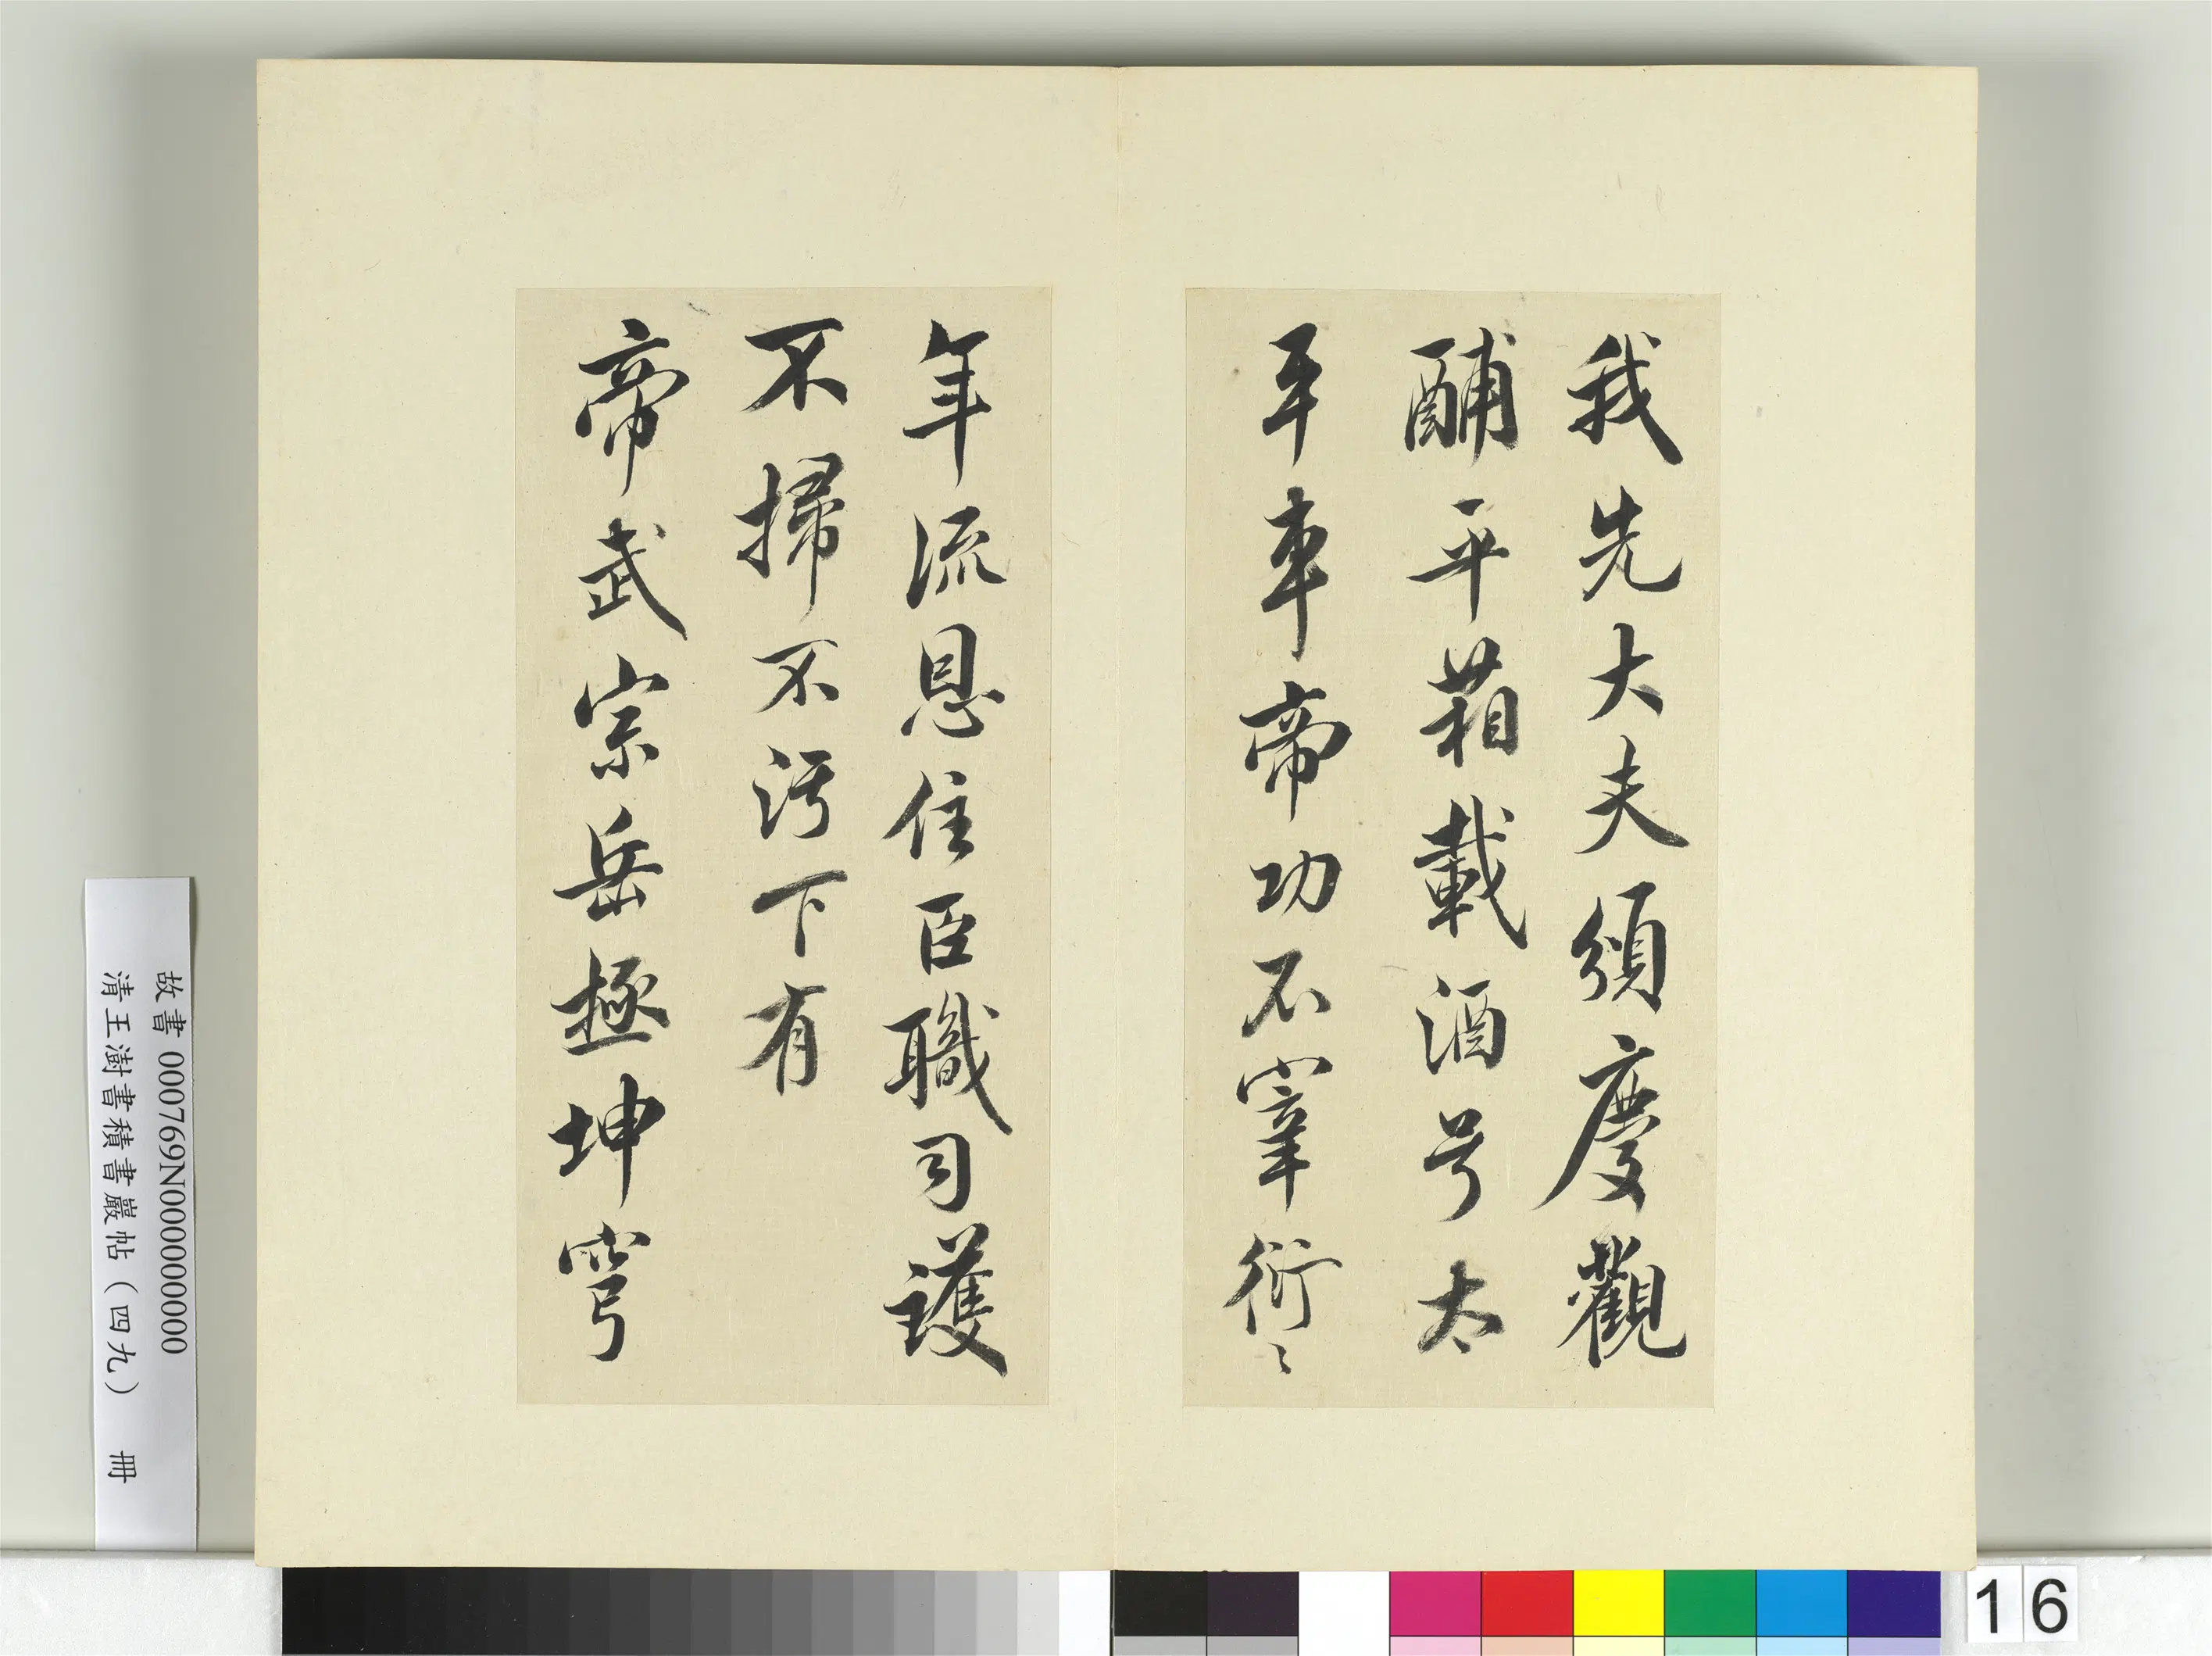 我先大夫須慶觀
酺平葙載酒号太
平車帝功不宰衍〻
年流恩住臣職司護
不掃不污下有
帝武宗岳極坤穹
故書 000769N000000000
清王澍書積書巖帖（四九） 冊
16